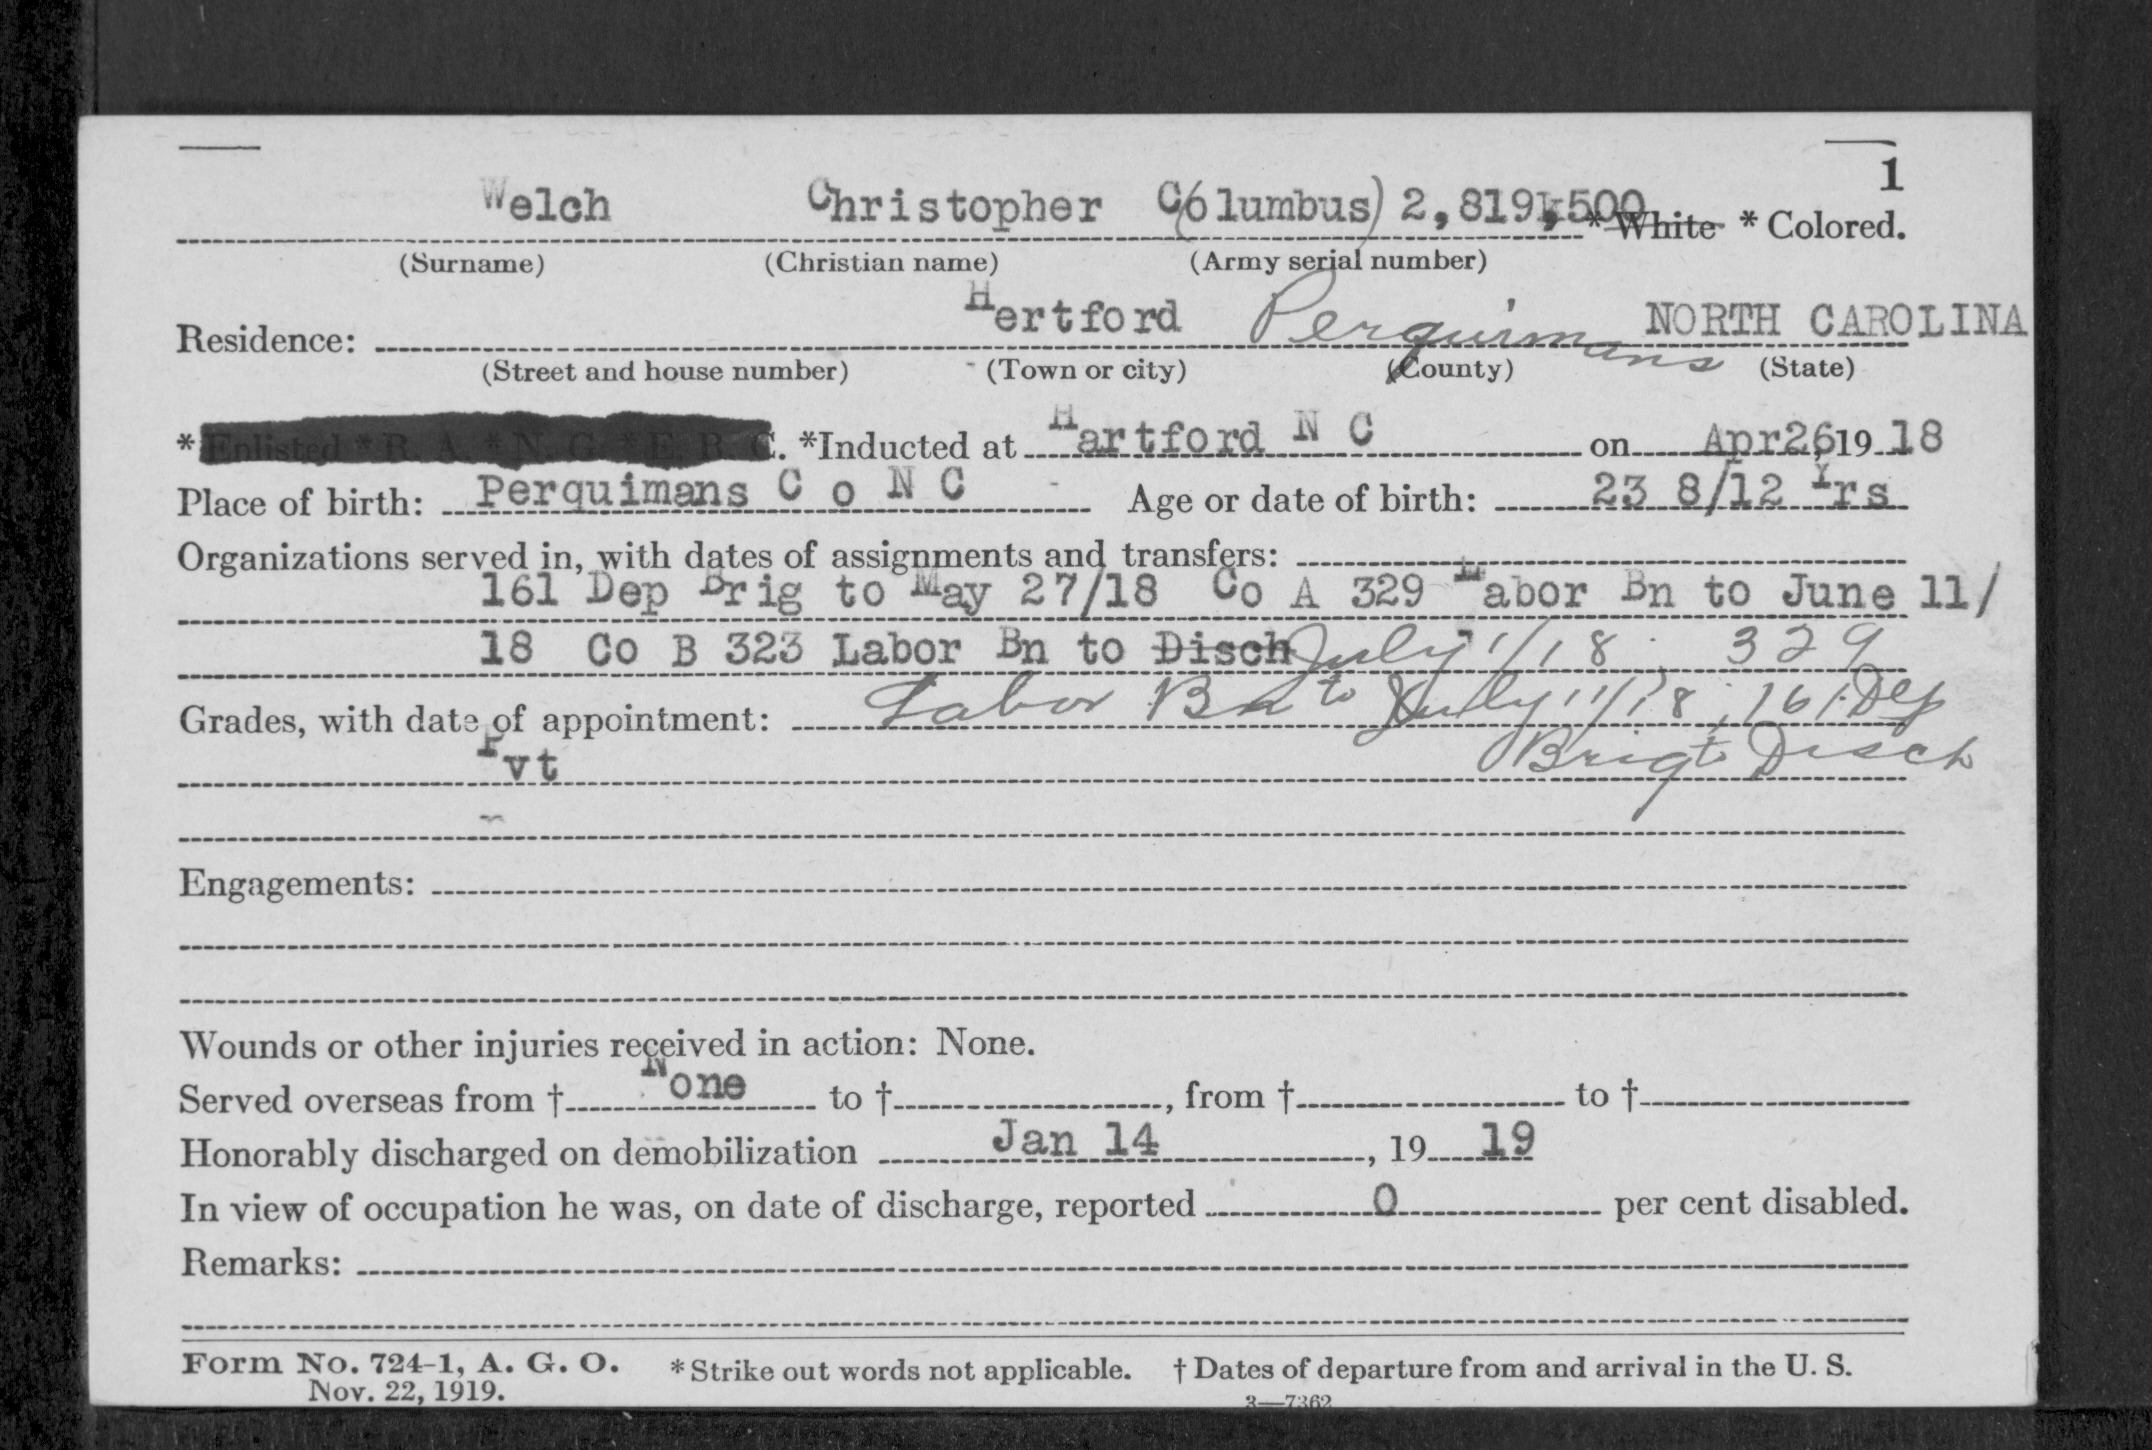 1
Welch Christopher C(olumbus) 2,819,500 * White * Colored.
(Surname) (Christian name) (Army serial number)
Residence: Hertford Perquimans NORTH CAROLINA
(Street and house number) (Town or city) (County) (State)
* Enlisted * R. A. * N. G. * E. R. C. *Inducted at Hartford N C on Apr26, 19 18
Place of birth: Perquimans C o N C Age or date of birth: 23 8/12 Yrs
Organizations served in, with dates of assignments and transfers:
161 Dep Brig to May 27/18 Co A 329 Labor Bn to June 11/
18 Co B 323 Labor Bn to Disch July 1/18; 329
Grades, with date of appointment: Labor Bn to July 11/18; 161 Dep
Pvt Brig to Disch
Engagements:
Wounds or other injuries received in action: None.
Served overseas from † None to †, from † to †
Honorably discharged on demobilization Jan 14, 19 19
In view of occupation he was, on date of discharge, reported 0 per cent disabled.
Remarks:
Form No. 724-1, A. G. O. * Strike out words not applicable. † Dates of departure from and arrival in the U. S.
Nov. 22, 1919. 3—7362